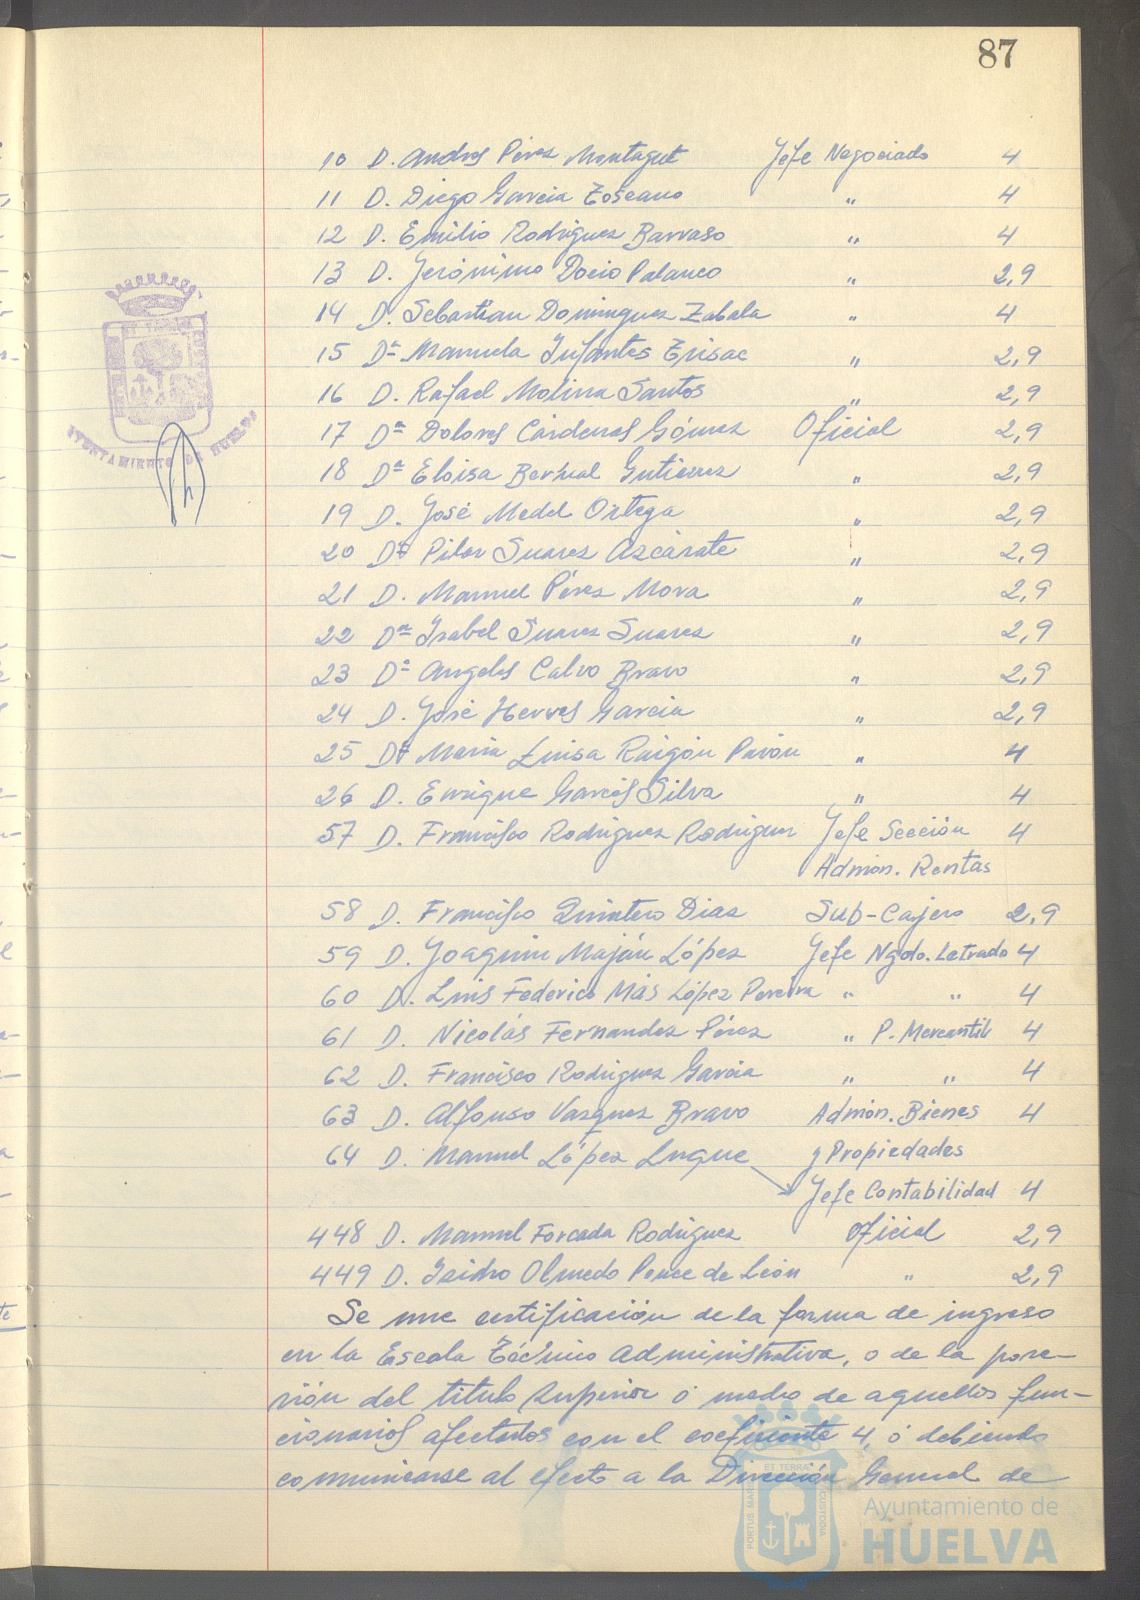 87
10 D. Andres Pérez Montagut Jefe Negociado 4
11 D. Diego Garcia Toscano " 4
12 D. Emilio Rodriguez Barraso " 4
13 D. Jerónimo Docio Palanco " 2,9
14 D. Sebastian Dominguez Zabala " 4
15 Dª Manuela Infantes Trisac " 2,9
16 D. Rafael Molina Santos " 2,9
17 Dª Dolores Cárdenas Gómez Oficial 2,9
18 Dª Eloisa Bernal Gutierrez " 2,9
19 D. José Medel Ortega " 2,9
20 Dª Pilar Suarez Azcárate " 2,9
21 D. Manuel Pérez Mora " 2,9
22 Dª Isabel Suarez Suarez " 2,9
23 Dª Angeles Calvo Bravo " 2,9
24 D. José Herves Garcia " 2,9
25 Dª Maria Luisa Raigón Pavón " 4
26 D. Enrique Garcés Silva " 4
57 D. Francisco Rodriguez Rodriguez Jefe Sección 4
Admón. Rentas
58 D. Francisco Quintero Diaz Sub-Cajero 2,9
59 D. Joaquin Maján López Jefe Ngdo. Letrado 4
60 D. Luis Federico Más López Pereira " " 4
61 D. Nicolás Fernandez Pérez " P. Mercantil 4
62 D. Francisco Rodriguez Garcia " " 4
63 D. Alfonso Vazquez Bravo Admón. Bienes 4
64 D. Manuel López Luque y Propiedades
Jefe Contabilidad 4
448 D. Manuel Forcada Rodriguez Oficial 2,9
449 D. Isidro Olmedo Ponce de León " 2,9
Se une certificación de la forma de ingreso
en la Escala Técnico Administrativa, o de la pose-
sión del titulo superior ó medio de aquellos fun-
cionarios afectados con el coeficiente 4, ó debiendo
comunicarse al efecto a la Dirección General de
AYUNTAMIENTO DE HUELVA
PORTUS MARIS ET TERRAE CUSTODIA
Ayuntamiento de
HUELVA